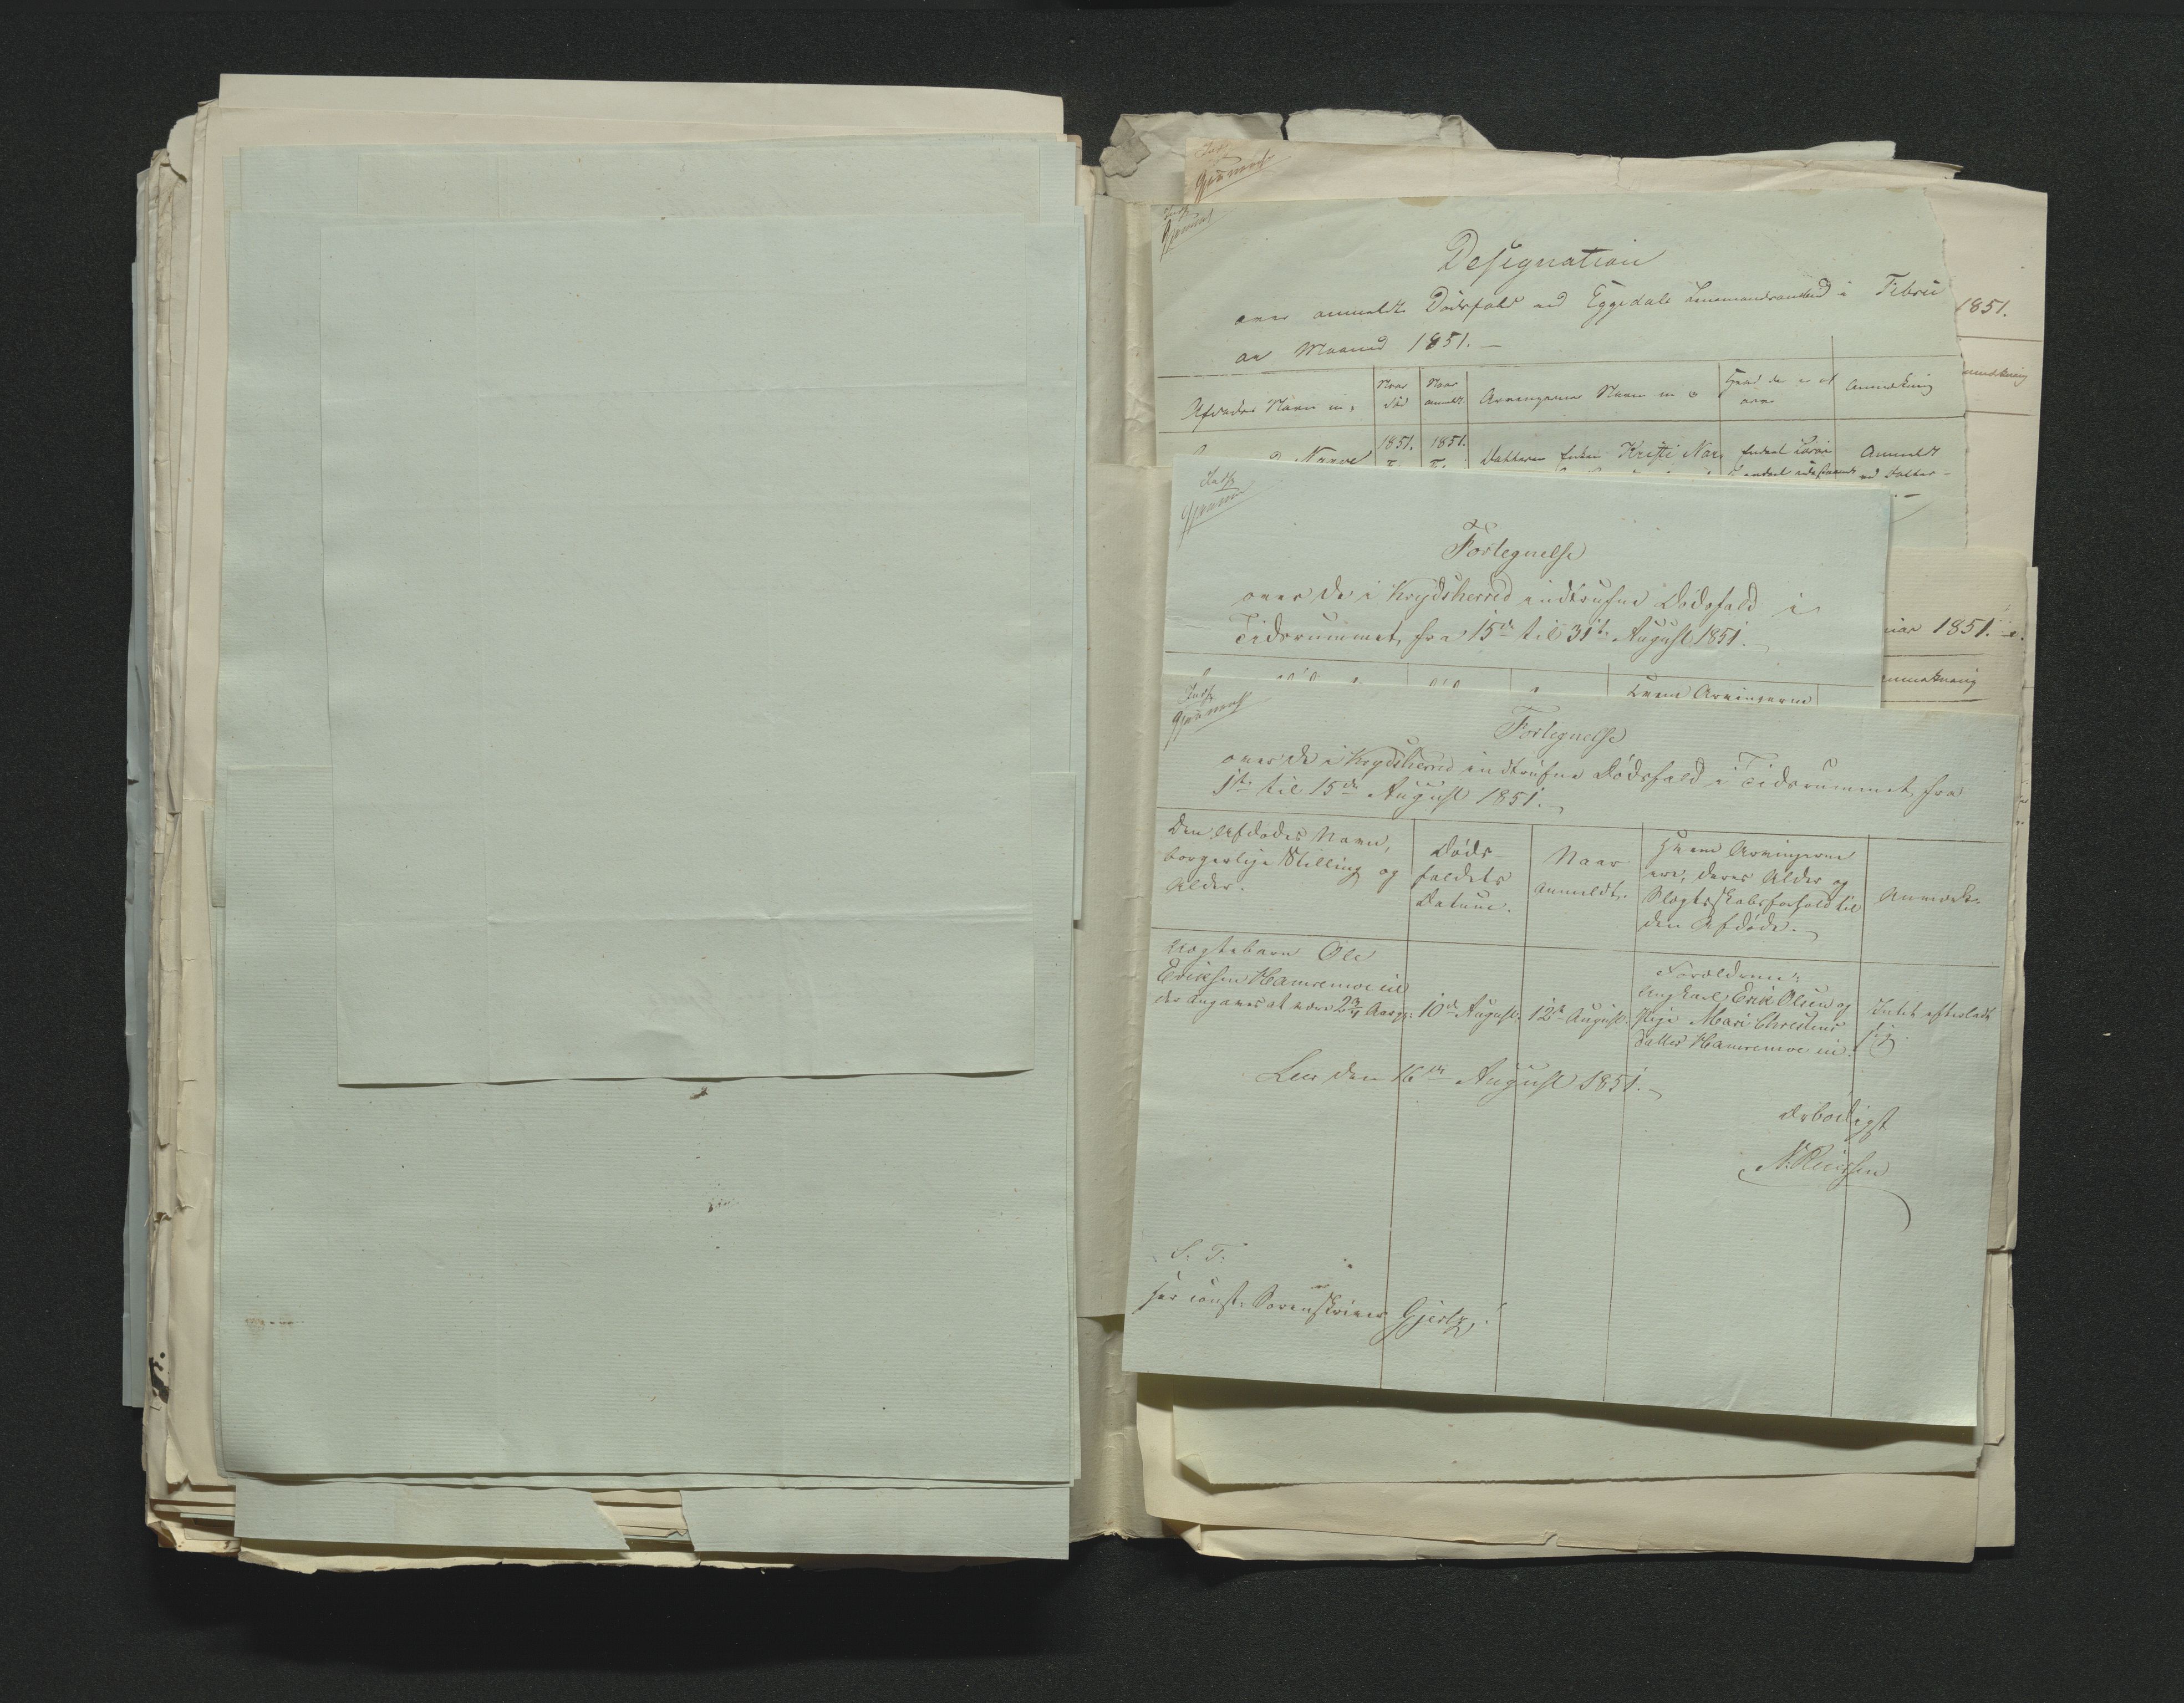 Designation
over anmeldte Dødsfald ved Eggedals Lensmandsombud i Februar
Maaned 1851.
1851.
Afdødes Navn m,
Naar død
Naar anmeldt
Arvingernes Navn m
Hvad de er
Anmerkning
1851. 1851.
Datteren Enken Kristi
Anmeldt
Indf
Fortegnelse
over de i Krydsherred indtrufne Dødsfald i
Tidsrummet, fra 15de til 31te August 1851.
Hvem Arvingerne
1851.
Indf
Fortegnelse
over de i Krydsherred indtrufne Dødsfald i Tidsrummet, fra
1ste til 15de August 1851.
Den Afdødes Navn,
borgerlige Stilling og
Alder.
Døds-
faldets
Datum.
Naar
anmeldt.
Hvem Arvingerne
ere, deres Alder og
Slægtskabsforhold til
den Afdøde.
Anmærk.
Uægtebarn Ole
Eriksen Hamremoe
der angaves at være 2 3/4 Aar gl:
10de August:
12te August:
Forældrene:
Ungkarl Erik Olsen og
Pige Mari Christens
datter Hamremoe
Intet efterladt
sig
Leer den 16de August 1851.
ærbødigst
S. T.
Hr const. Sorenskriver Gjertz,